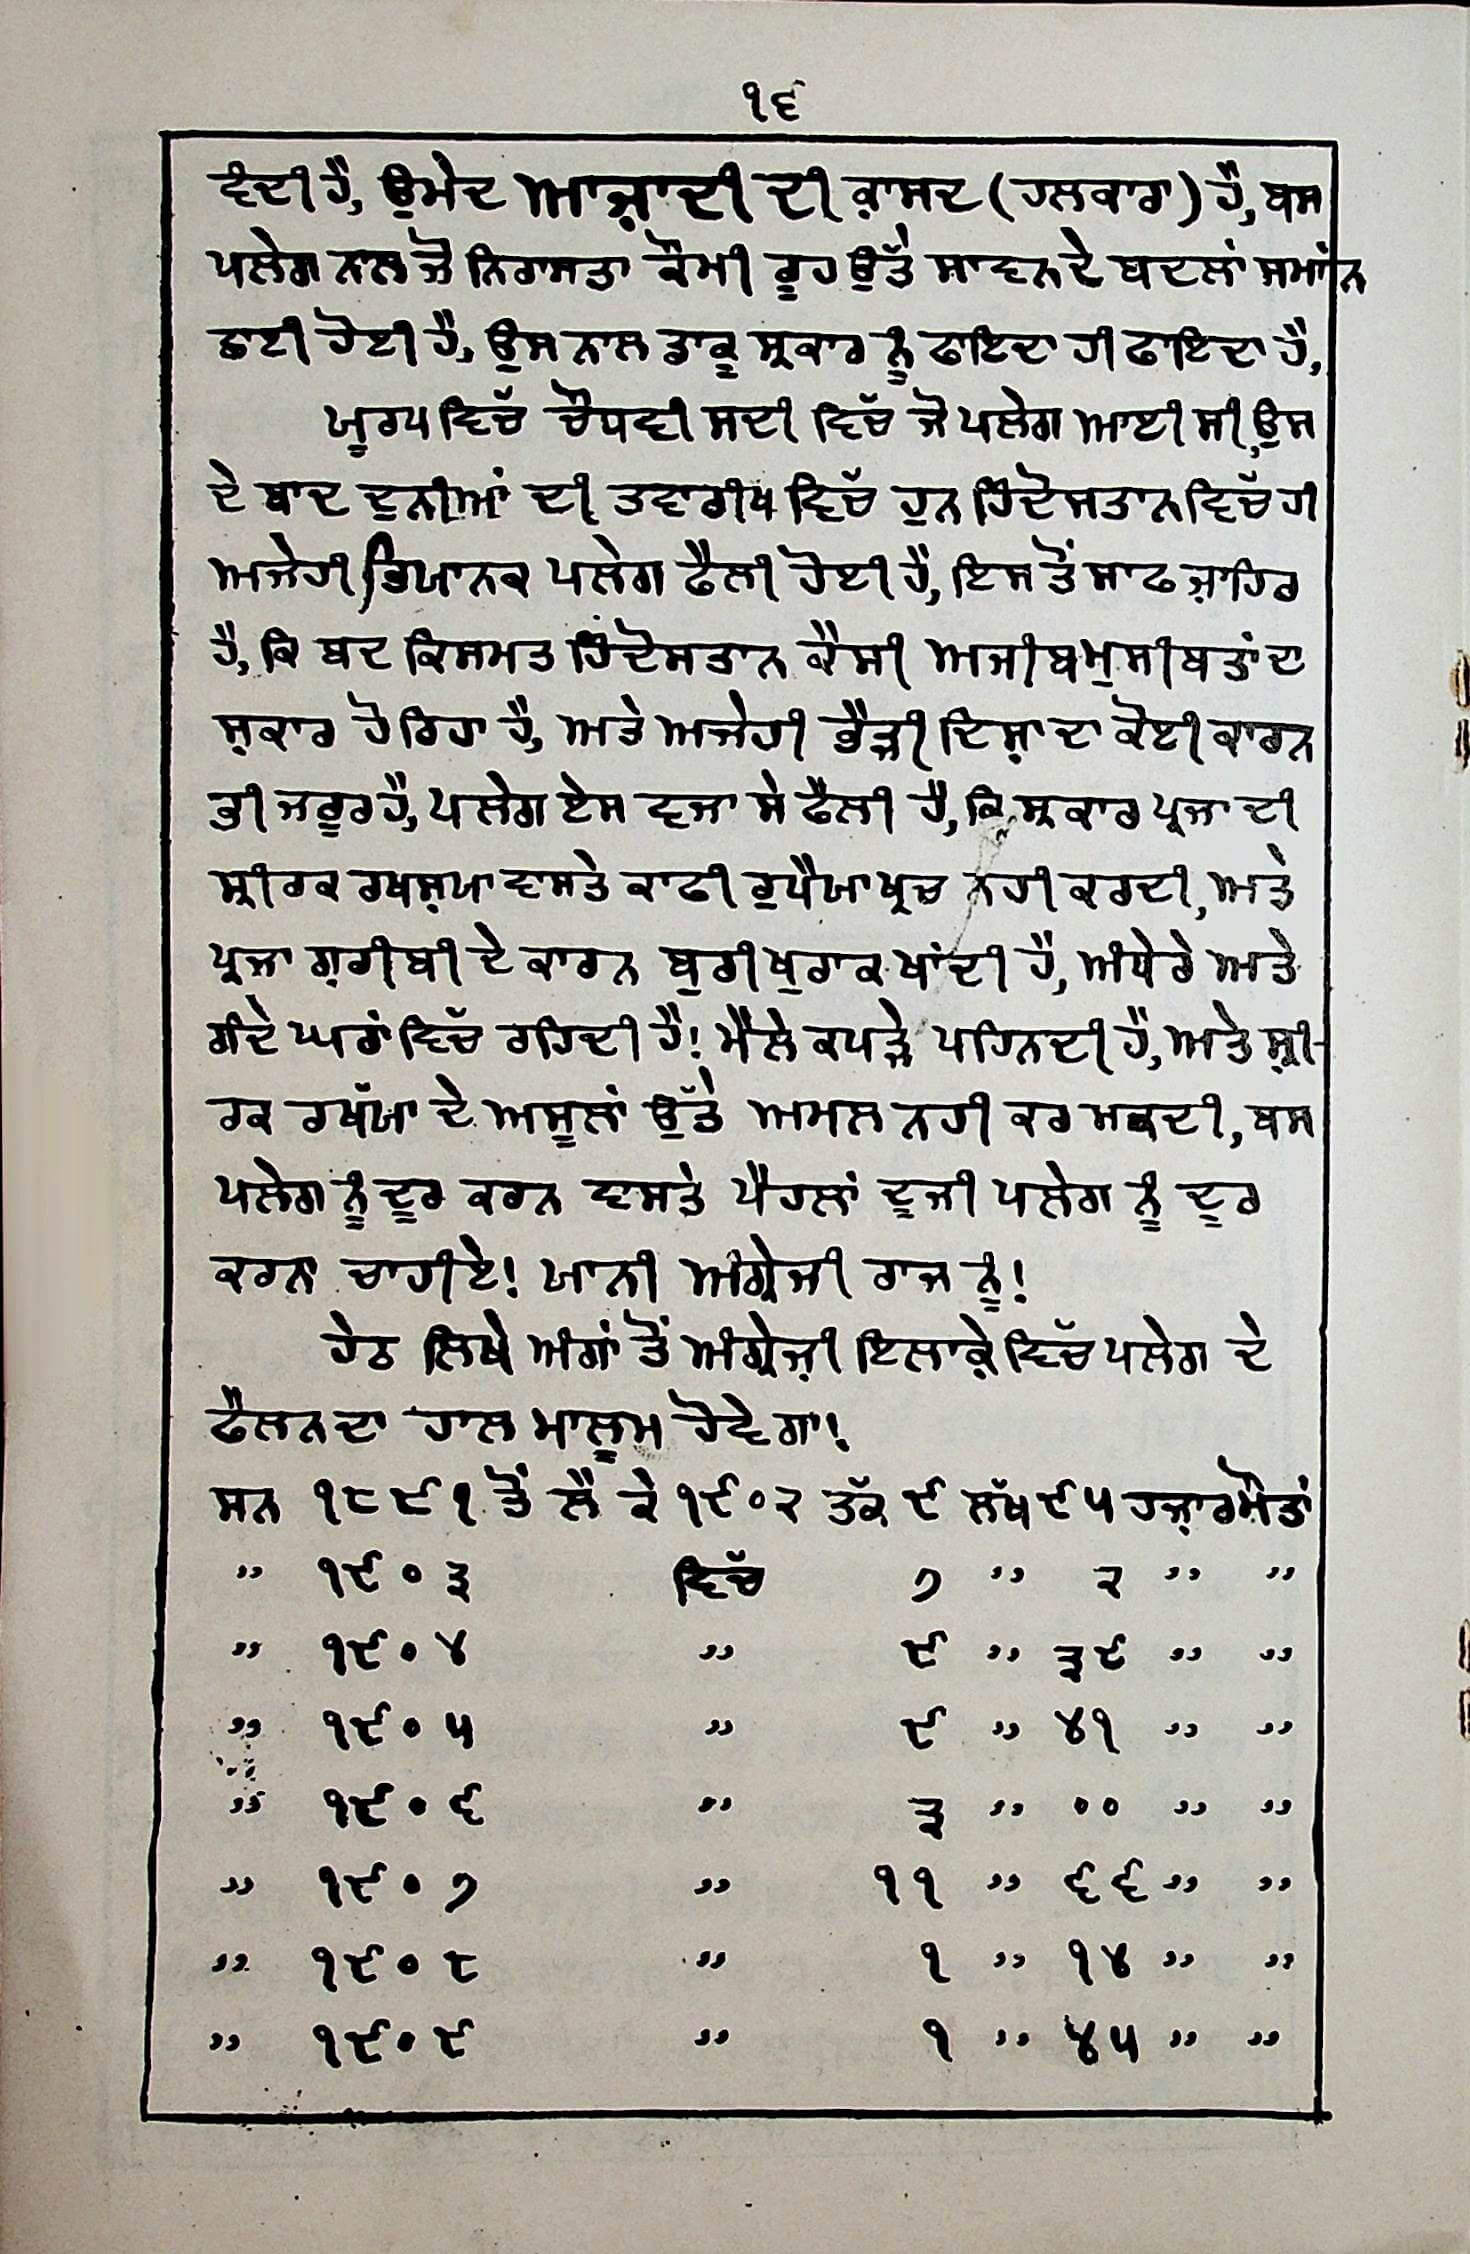 ੧੬
ਵੰਦੀ ਹੈ, ਉਮੇਦ ਆਜ਼ਾਦੀ ਦੀ ਕ਼ਾਸਦ (ਹਲਕਾਰਾ) ਹੈ, ਬਸ
ਪਲੇਗ ਨਾਲ ਜੋ ਨਿਰਾਸਤਾ ਕੌਮੀ ਰੂਹ ਉੱਤੇ ਸਾਵਨ ਦੇ ਬਦਲਾਂ ਸਮਾਨ
ਛਾਈ ਹੋਈ ਹੈ, ਉਸ ਨਾਲ ਡਾਕੂ ਸ੍ਰਕਾਰ ਨੂੰ ਫਾਇਦਾ ਹੀ ਫਾਇਦਾ ਹੈ,
ਯੂਰਪ ਵਿੱਚ ਚੌਧਵੀ ਸਦੀ ਵਿੱਚ ਜੋ ਪਲੇਗ ਆਈ ਸੀ, ਉਸ
ਦੇ ਬਾਦ ਦੁਨੀਆਂ ਦੀ ਤਵਾਰੀਖ ਵਿੱਚ ਹੁਨ ਹਿੰਦੋਸਤਾਨ ਵਿੱਚ ਹੀ
ਅਜੇਹੀ ਭਿਯਾਨਕ ਪਲੇਗ ਫੈਲੀ ਹੋਈ ਹੈ, ਇਸ ਤੋਂ ਸਾਫ ਜ਼ਾਹਿਰ
ਹੈ, ਕਿ ਬਦ ਕਿਸਮਤ ਹਿੰਦੋਸਤਾਨ ਕੈਸੀ ਅਜੀਬ ਮੁਸੀਬਤਾਂ ਦਾ
ਸ਼ਕਾਰ ਹੋ ਰਿਹਾ ਹੈ, ਅਤੇ ਅਜੇਹੀ ਭੈੜੀ ਦਿਸ਼ਾ ਦਾ ਕੋਈ ਕਾਰਨ
ਭੀ ਜਰੂਰ ਹੈ, ਪਲੇਗ ਏਸ ਵਜਾ ਸੇ ਫੈਲੀ ਹੈ, ਕਿ ਸ੍ਰਕਾਰ ਪ੍ਰਜਾ ਦੀ
ਸ੍ਰੀਰਕ ਰਖਸ਼ਯਾ ਵਾਸਤੇ ਕਾਫੀ ਰੁਪੈਯਾ ਖ੍ਰਚ ਨਹੀ ਕਰਦੀ, ਅਤੇ
ਪ੍ਰਜਾ ਗ਼ਰੀਬੀ ਦੇ ਕਾਰਨ ਬੁਰੀ ਖੁਰਾਕ ਖਾਂਦੀ ਹੈ, ਅੰਧੇਰੇ ਅਤੇ
ਗੰਦੇ ਘਰਾਂ ਵਿੱਚ ਰਹਿਦੀ ਹੈ! ਮੈਲੇ ਕਪੜੇ ਪਹਿਨਦੀ ਹੈ, ਅਤੇ ਸ਼੍ਰੀ-
ਰਕ ਰਖੱਯਾ ਦੇ ਅਸੂਲਾਂ ਉੱਤੇ ਅਮਲ ਨਹੀ ਕਰ ਸਕਦੀ, ਬਸ
ਪਲੇਗ ਨੂੰ ਦੂਰ ਕਰਨ ਵਾਸਤੇ ਪੈਹਲਾਂ ਦੂਜੀ ਪਲੇਗ ਨੂੰ ਦੂਰ
ਕਰਨਾ ਚਾਹੀਏ! ਯਾਨੀ ਅੰਗ੍ਰੇਜੀ ਰਾਜ ਨੂੰ!
ਹੇਠ ਲਿਖੇ ਅੰਗਾਂ ਤੋਂ ਅੰਗ੍ਰੇਜ਼ੀ ਇਲਾਕ਼ੇ ਵਿੱਚ ਪਲੇਗ ਦੇ
ਫੈਲਨ ਦਾ ਹਾਲ ਮਾਲੂਮ ਹੋਵੇਗਾ!
ਸਨ ੧੮੯੧ ਤੋਂ ਲੈ ਕੇ ੧੯੦੨ ਤੱਕ ੯ ਲੱਖ ੯੫ ਹਜ਼ਾਰ ਮੌਤਾਂ
" ੧੯੦੩ ਵਿੱਚ ੭ " ੨ " "
" ੧੯੦੪ " ੯ " ੩੯ " "
" ੧੯੦੫ " ੯ " ੪੧ " "
" ੧੯੦੬ " ੩ " ੦੦ " "
" ੧੯੦੭ " ੧੧ " ੬੬ " "
" ੧੯੦੮ " ੧ " ੧੪ " "
" ੧੯੦੯ " ੧ " ੪੫ " "